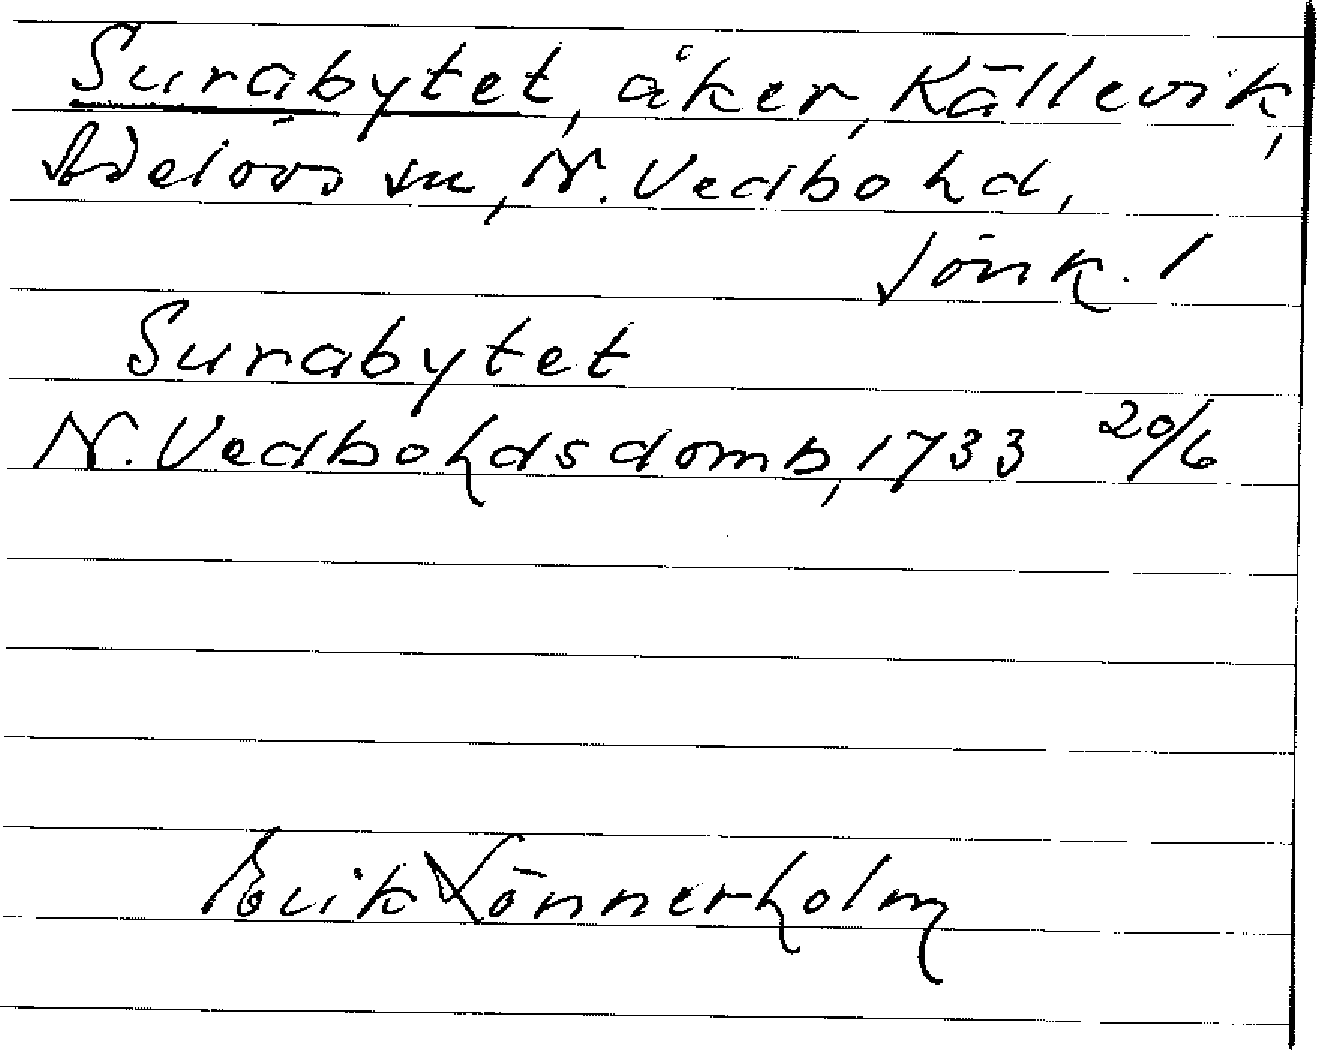 Surabytet, åker, Källevik,
Adelövs sn, N. Vedbo hd,
Jönk. l
Surabytet
N. Vedbohdsdomb, 1733 20/6
Erik Lönnerholm